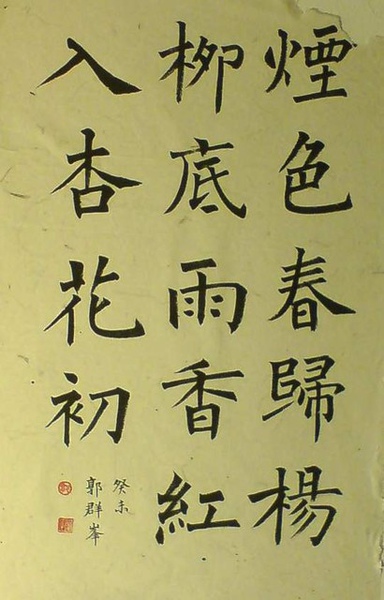 煙色春歸楊
栁底雨香紅
入杏花初
癸未
郭群峯